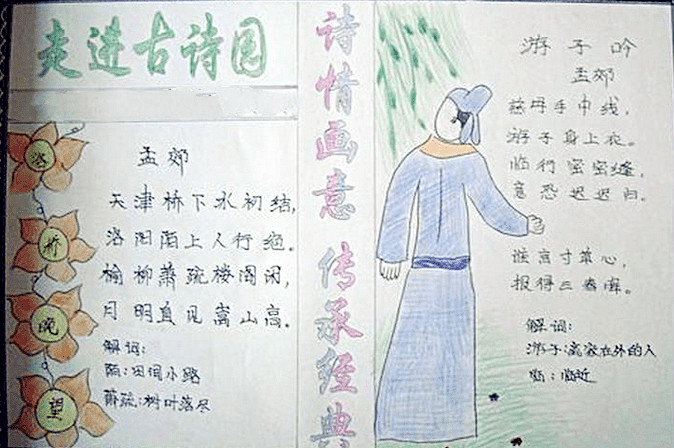 走进古诗园
洛桥晚望
孟郊
天津桥下水初结,
洛阳陌上人行绝。
榆柳萧疏楼阁闲,
月明直见嵩山高。
解词:
陌:田间小路
萧疏:树叶落尽
诗情画意 传承经典
游子吟
孟郊
慈母手中线,
游子身上衣。
临行密密缝,
意恐迟迟归。
谁言寸草心,
报得三春晖。
解词:
游子:离家在外的人
临:临近